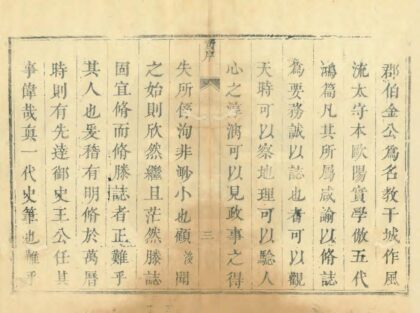 郡伯金公為名教干城作風
流太守本歐陽實學倣五代
鴻篇凡其所屬咸諭以脩誌
為要務誠以誌也者可以觀
天時可以察地理可以驗人
心之淳漓可以見政事之得
失所係洵非尠小也顧淩聞
之始則欣然繼且茫然滕誌
固宜脩而脩滕誌者正難乎
其人也爰稽有明脩於萬曆
時則有先達御史王公任其
事偉哉真一代史筆也難乎
三